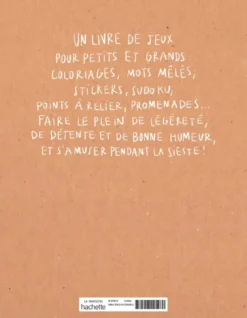 UN LIVRE DE JEUX
POUR PETITS ET GRANDS
COLORIAGES, MOTS MÊLÉS,
STICKERS, SUDOKU,
POINTS À RELIER, PROMENADES...
FAIRE LE PLEIN DE LÉGÈRETÉ,
DE DÉTENTE ET DE BONNE HUMEUR,
ET S'AMUSER PENDANT LA SIESTE !
hachette